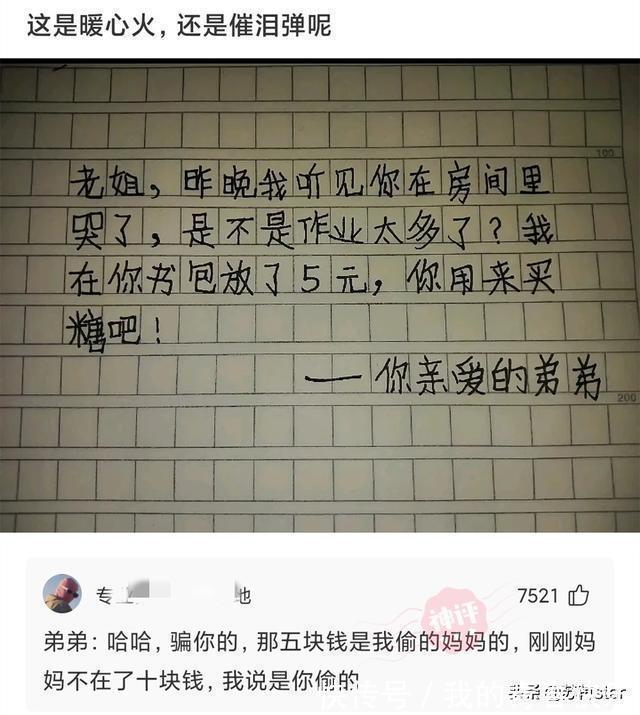 这是暖心火，还是催泪弹呢
100
老姐，昨晚我听见你在房间里
哭了，是不是作业太多了？我
在你书包放了5元，你用来买
糖吧！
——你亲爱的弟弟
200
专
地
7521
神评
弟弟：哈哈，骗你的，那五块钱是我偷的妈妈的，刚刚妈
妈不在了十块钱，我说是你偷的
快传号/我的
头条
star